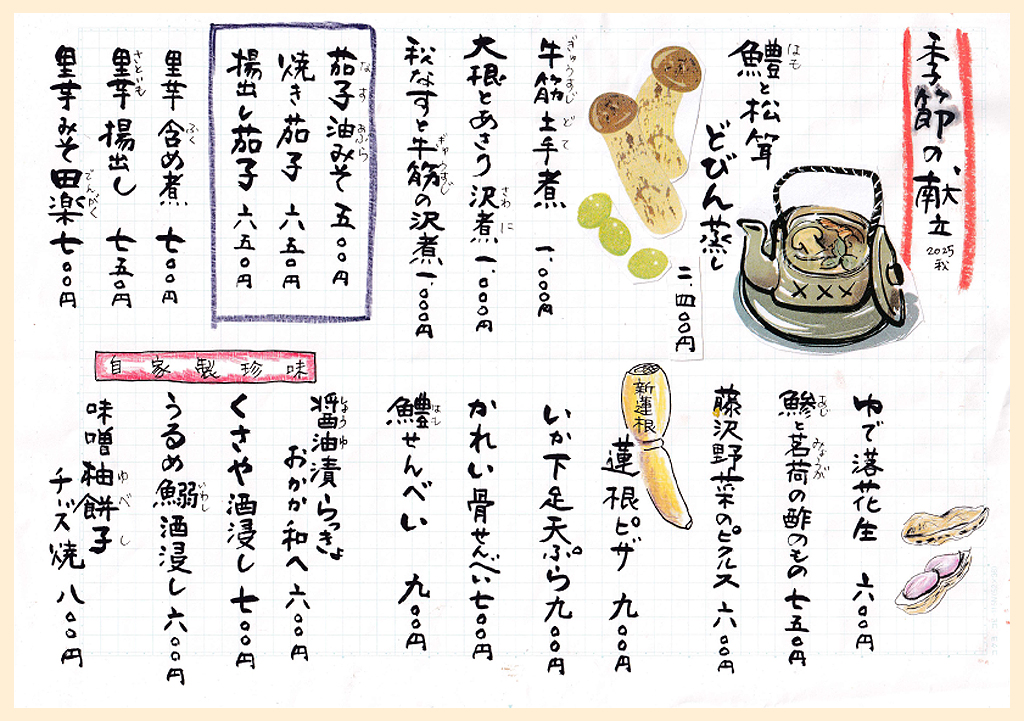 季節の献立
2025 秋
鱧と松茸
はも
どびん蒸し
二、四〇〇円
牛筋土手煮 一、〇〇〇円
ぎゅうすじ どて
大根とあさり沢煮 一、〇〇〇円
さわに
秋なすと牛筋の沢煮 一、〇〇〇円
ぎゅうすじ
茄子油みそ 五〇〇円
なす あぶら
焼き茄子 六五〇円
揚出し茄子 六五〇円
里芋含め煮 七〇〇円
ふく
里芋揚出し 七五〇円
さといも
里芋みそ田楽 七〇〇円
でんがく
ゆで落花生 六〇〇円
鯵と茗荷の酢のもの 七五〇円
あじ みょうが
藤沢野菜のピクルス 六〇〇円
新蓮根
蓮根ピザ 九〇〇円
いか下足天ぷら 九〇〇円
かれい骨せんべい 七〇〇円
鱧せんべい 九〇〇円
はも
自家製珍味
醤油漬らっきょ
しょうゆ
おかか和へ 六〇〇円
くさや酒浸し 七〇〇円
うるめ鰯酒浸し 六〇〇円
いわし
味噌柚餅子
ゆべし
チーズ焼 八〇〇円